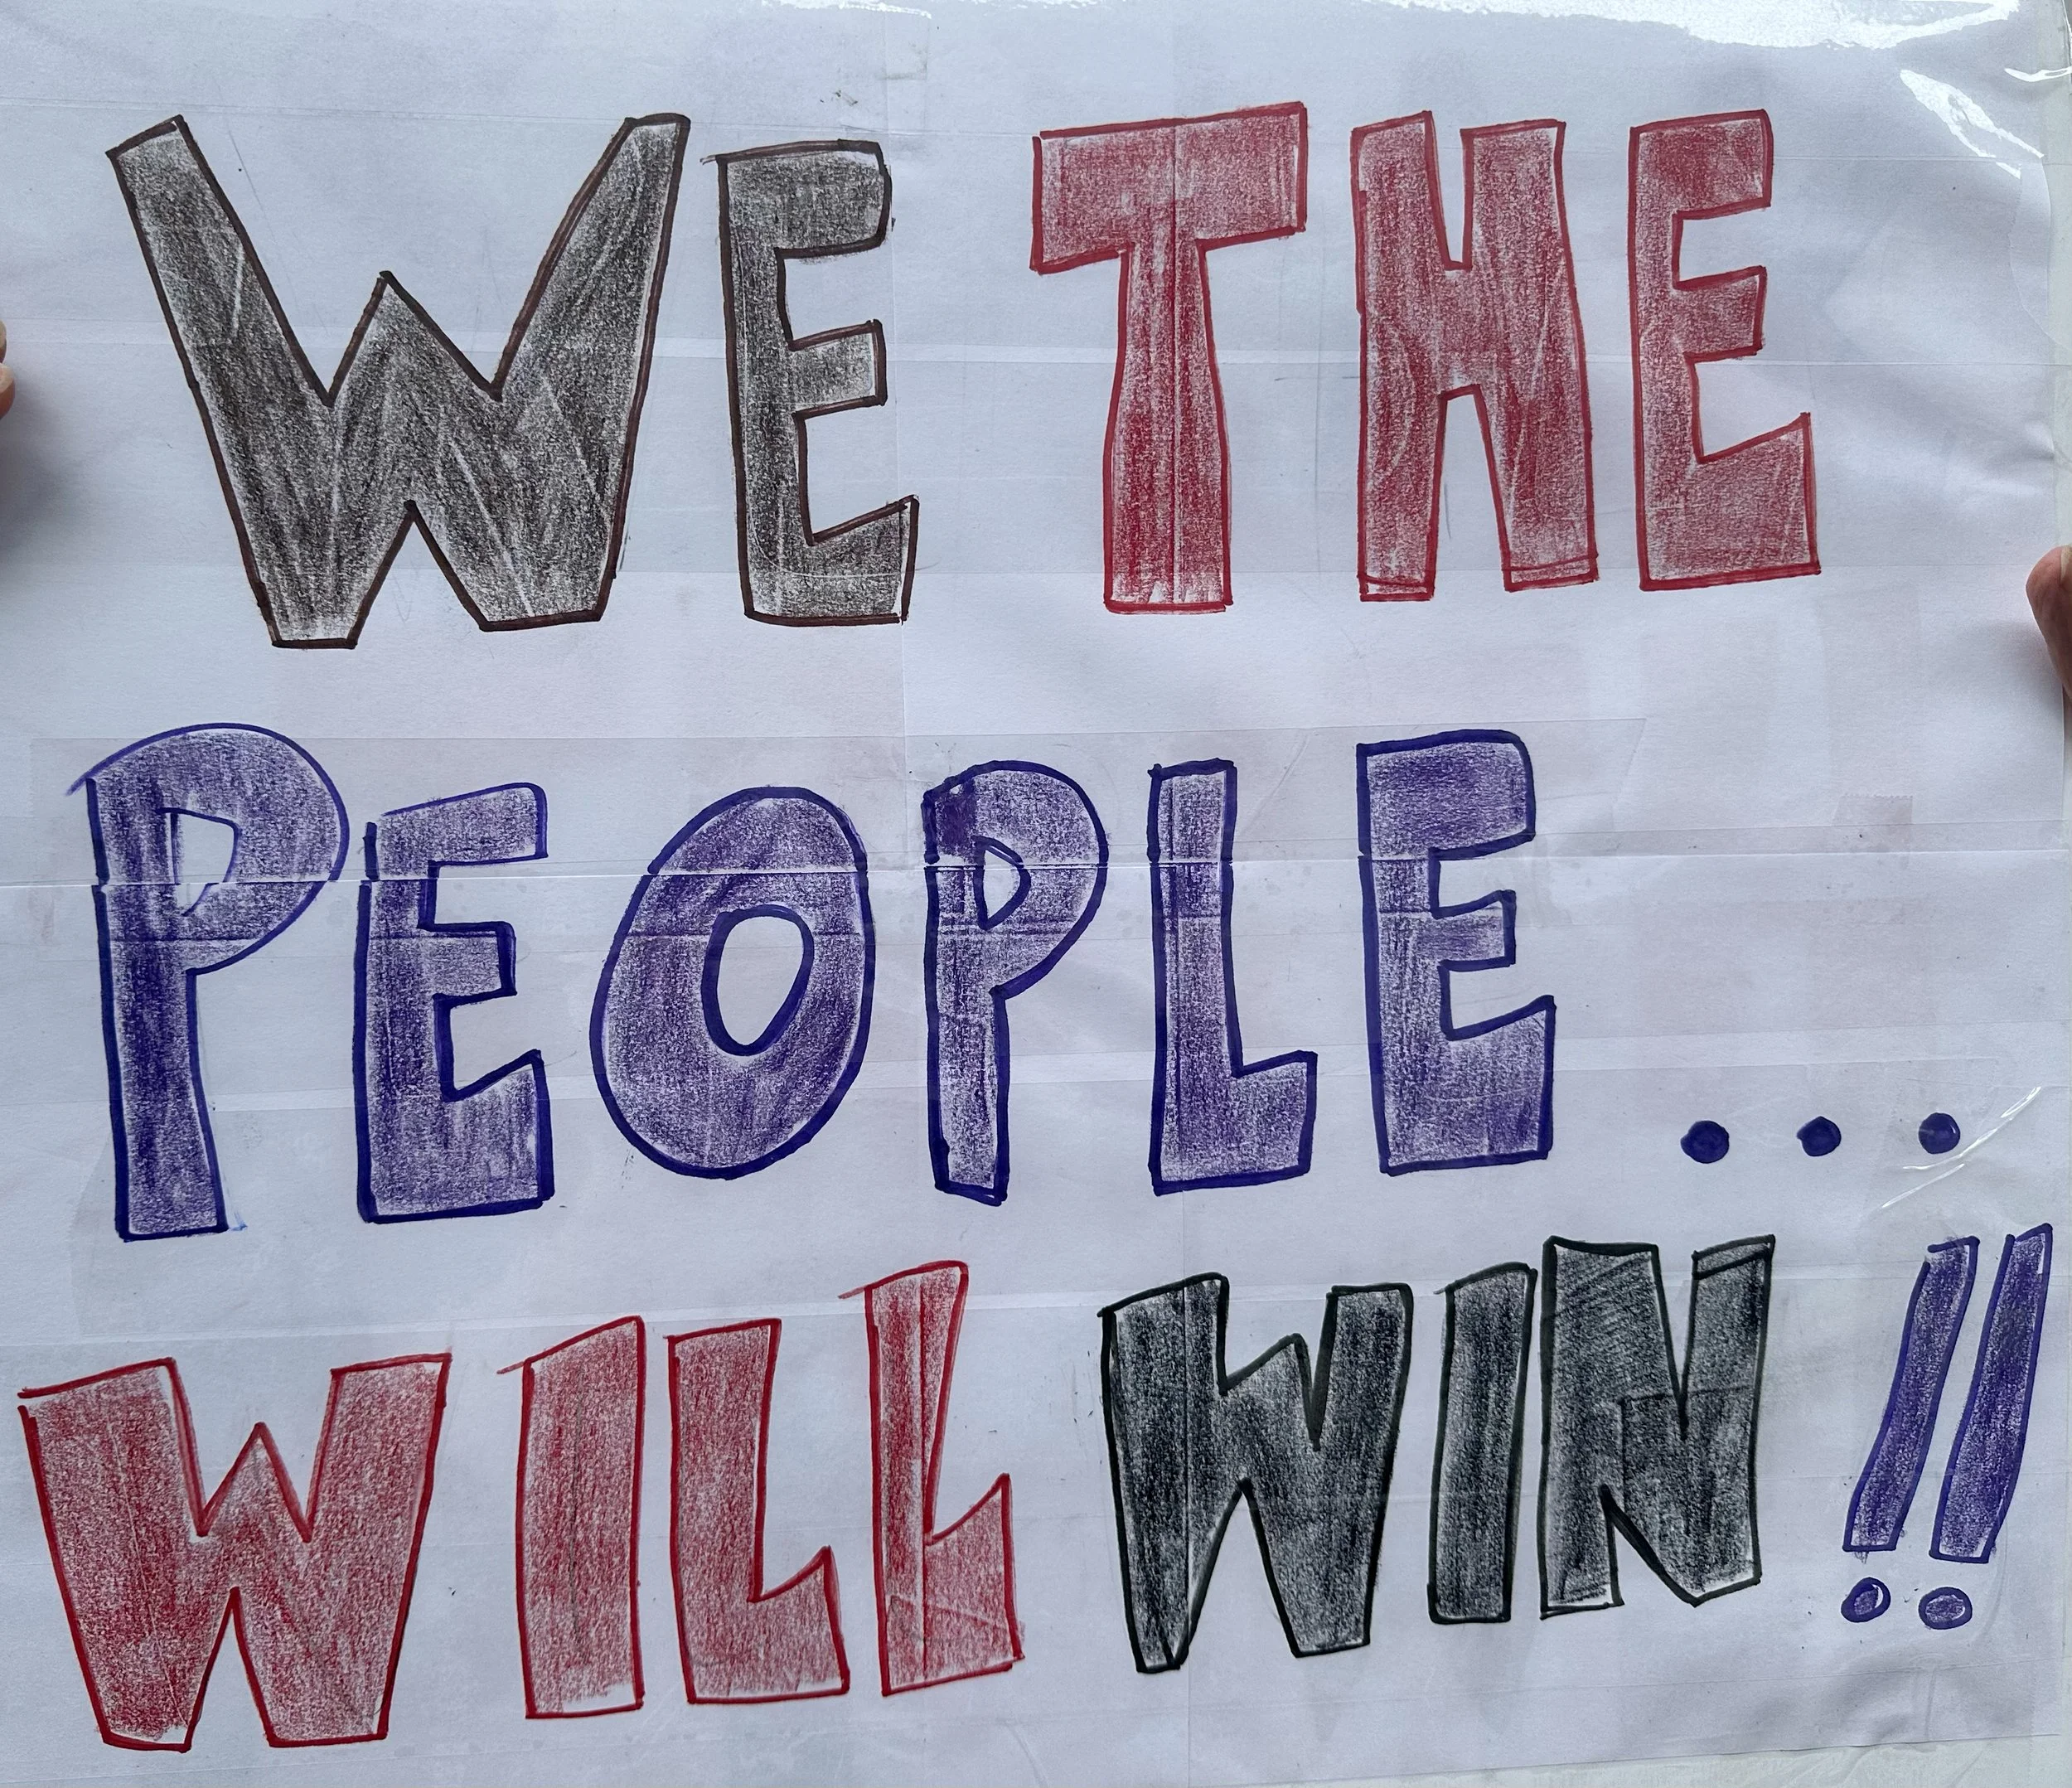 WE THE
PEOPLE...
WILL WIN!!